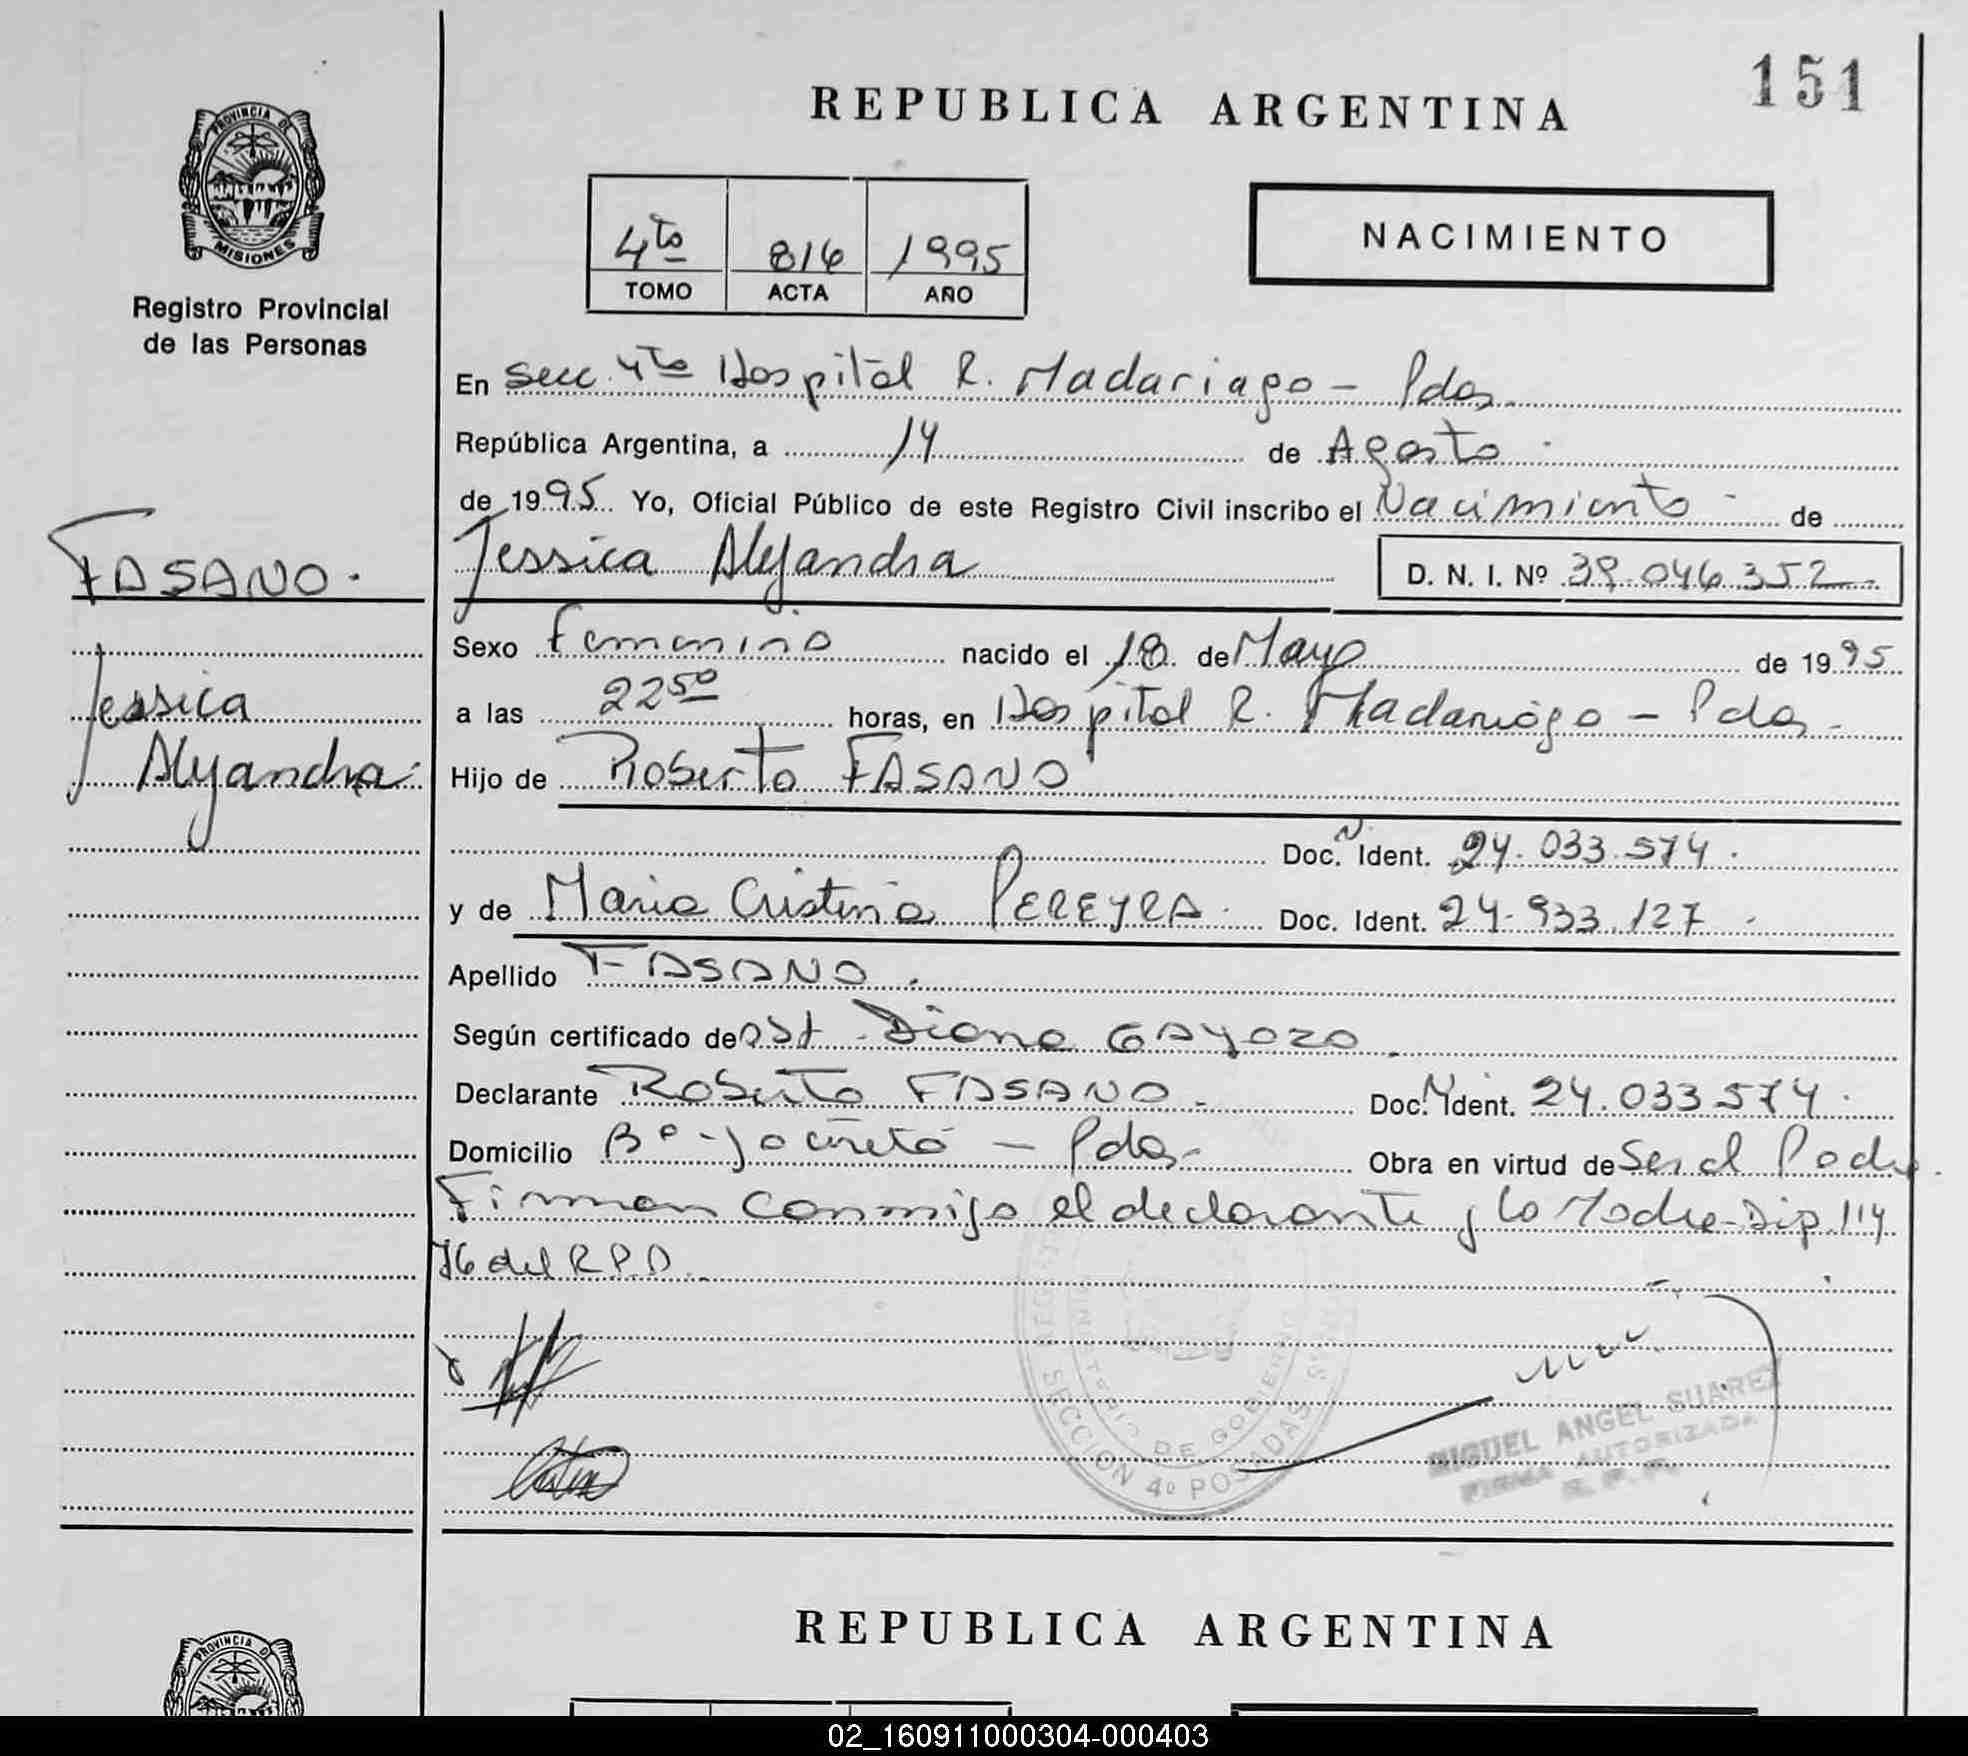 151
REPUBLICA ARGENTINA
PROVINCIA DE
MISIONES
Registro Provincial
de las Personas
4to 816 1995
TOMO ACTA AÑO
NACIMIENTO
En secc. 4to Hospital R. Madariaga - Pdas.
República Argentina, a 14 de Agosto
de 1995 Yo, Oficial Público de este Registro Civil inscribo el Nacimiento de
FASANO.
Jessica Alejandra D. N. I. Nº 39.046.352
Sexo Femenino nacido el 18 de Mayo de 1995
Jessica
Alejandra
a las 22 50 horas, en Hospital R. Madariaga - Pdas.
Hijo de Roberto FASANO
Doc. N. Ident. 24.033.574.
y de Maria Cristina PEREYRA. Doc. Ident. 24.933.127.
Apellido FASANO.
Según certificado de Obst. Diana GAYOZO.
Declarante Roberto FASANO. Doc. N. Ident. 24.033.574.
Domicilio Bº Yacireta - Pdas. Obra en virtud de Ser el Padre.
Firman conmigo el declarante y la Madre - Disp. 114
76 del R.P.D.
SECCION 4º POSADAS
DE GOBIERNO
MIGUEL ANGEL SUAREZ
FIRMA AUTORIZADA
R. P. P.
REPUBLICA ARGENTINA
PROVINCIA DE
02_160911000304-000403